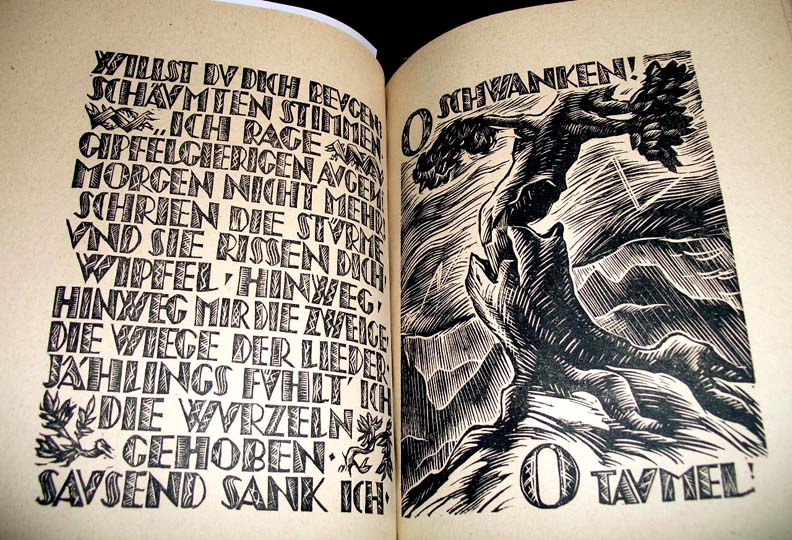 WILLST DV DICH BEVGEN?
SCHÄVMTEN STIMMEN!
„ICH RAGE
GIPFELGIERIGEN AVGEN.
MORGEN NICHT MEHR!
SCHRIEN DIE STVRME,
VND SIE RISSEN DICH,
WIPFEL · HINWEG,
HINWEG MIR DIE ZWEIGE,
DIE WIEGE DER LIEDER.
JÄHLINGS FVHLT' ICH
DIE WVRZELN
GEHOBEN ·
SAVSEND SANK ICH ·
O SCHWANKEN!
O TAVMEL!